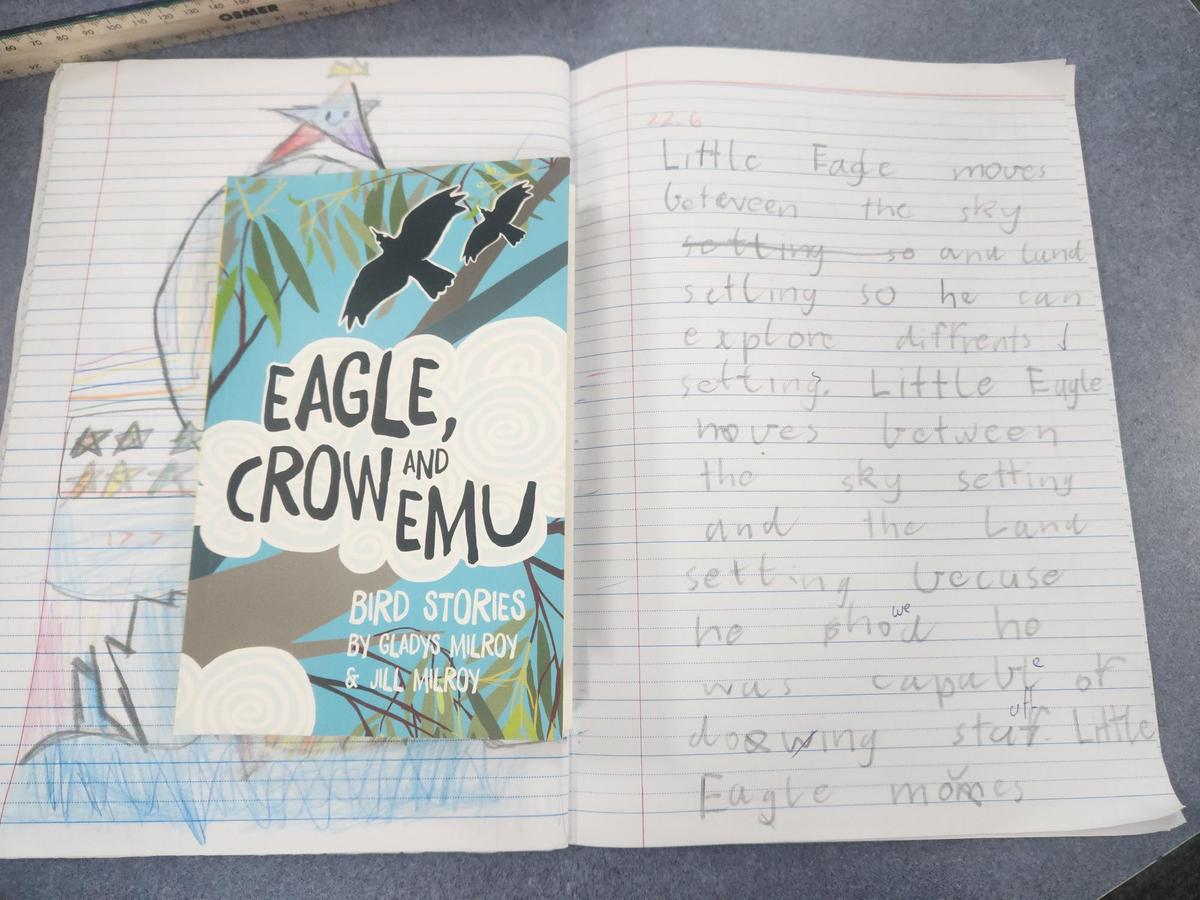 OSMER
17.7
EAGLE,
CROW AND
EMU
BIRD STORIES
BY GLADYS MILROY
& JILL MILROY
22.6
Little Eagle moves
between the sky
setting so and land
setting so he can
explore diffrents
setting. Little Eagle
moves between
the sky setting
and the Land
setting becuse
he showed he
was capable of
doing stuff. Little
Eagle moves